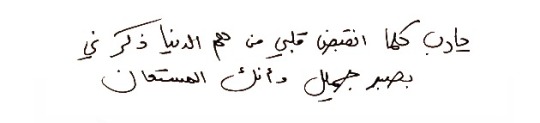 يارب كلما انقبض قلبي من هم الدنيا ذكرني
بصبر جميل وأنك المستعان